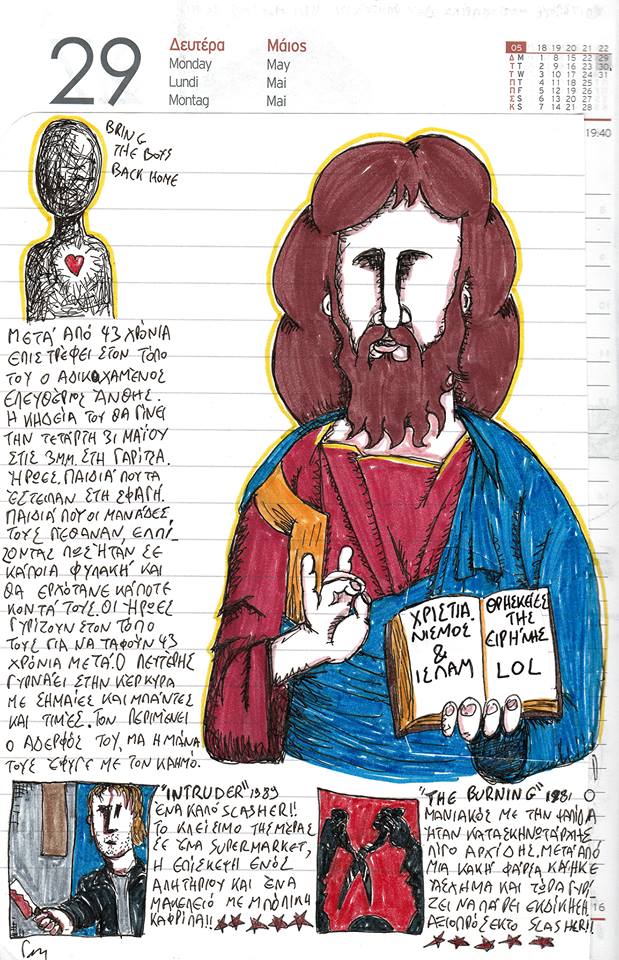 29
Δευτέρα Μάιος
Monday May
Lundi Mai
Montag Mai
05 18 19 20 21 22
Δ M 1 8 15 22 29
Τ T 2 9 16 23 30
Τ W 3 10 17 24 31
Π T 4 11 18 25
Π F 5 12 19 26
Σ S 6 13 20 27
Κ S 7 14 21 28
19:40
BRING
THE BOYS
BACK HOME
ΜΕΤΑ ΑΠΟ 43 ΧΡΟΝΙΑ
ΕΠΙΣΤΡΕΦΕΙ ΣΤΟΝ ΤΟΠΟ
ΤΟΥ Ο ΑΔΙΚΟΧΑΜΕΝΟΣ
ΕΛΕΥΘΕΡΙΟΣ ΑΝΘΗΣ.
Η ΚΗΔΕΙΑ ΤΟΥ ΘΑ ΓΙΝΕΙ
ΤΗΝ ΤΕΤΑΡΤΗ 31 ΜΑΪΟΥ
ΣΤΙΣ 3ΜΜ. ΣΤΗ ΓΑΡΙΤΣΑ.
ΉΡΩΕΣ. ΠΑΙΔΙΑ ΠΟΥ ΤΑ
ΈΣΤΕΙΛΑΝ ΣΤΗ ΣΦΑΓΗ.
ΠΑΙΔΙΑ ΠΟΥ ΟΙ ΜΑΝΑΔΕΣ
ΤΟΥΣ ΠΕΘΑΝΑΝ, ΕΛΠΙ-
ΖΟΝΤΑΣ ΠΩΣ ΉΤΑΝ ΣΕ
ΚΑΠΟΙΑ ΦΥΛΑΚΗ ΚΑΙ
ΘΑ ΕΡΧΟΤΑΝΕ ΚΑΠΟΤΕ
ΚΟΝΤΑ ΤΟΥΣ. ΟΙ ΉΡΩΕΣ
ΓΥΡΙΖΟΥΝ ΣΤΟΝ ΤΟΠΟ
ΤΟΥΣ ΓΙΑ ΝΑ ΤΑΦΟΥΝ 43
ΧΡΟΝΙΑ ΜΕΤΑ. Ο ΛΕΥΤΕΡΗΣ
ΓΥΡΝΑΕΙ ΣΤΗΝ ΚΕΡΚΥΡΑ
ΜΕ ΣΗΜΑΙΕΣ ΚΑΙ ΜΠΑΝΤΕΣ
ΚΑΙ ΤΙΜΕΣ. ΤΟΝ ΠΕΡΙΜΕΝΕΙ
Ο ΑΔΕΡΦΟΣ ΤΟΥ, ΜΑ Η ΜΑΝΑ
ΤΟΥΣ ΈΦΥΓΕ ΜΕ ΤΟΝ ΚΑΗΜΟ.
ΧΡΙΣΤΙΑ-
ΝΙΣΜΟΣ
&
ΙΣΛΑΜ
ΘΡΗΣΚΕΙΕΣ
ΤΗΣ
ΕΙΡΗΝΗΣ
LOL
"INTRUDER" 1989
ΈΝΑ ΚΑΛΟ SLASHER!!
ΤΟ ΚΛΕΙΣΙΜΟ ΤΗΣ ΜΕΡΑΣ
ΣΕ ΈΝΑ SUPERMARKET,
Η ΕΠΙΣΚΕΨΗ ΕΝΟΣ
ΑΛΗΤΗΡΙΟΥ ΚΑΙ ΈΝΑ
ΜΑΚΕΛΕΙΟ ΜΕ ΜΠΟΛΙΚΗ
ΚΑΦΡΙΛΑ!!
"THE BURNING" 1981
ΜΑΝΙΑΚΟΣ ΜΕ ΤΗΝ ΨΑΛΙΔΑ
ΉΤΑΝ ΚΑΤΑΣΚΗΝΩΤΑΡΧΗΣ
ΛΙΓΟ ΑΡΧΙΔΗΣ. ΜΕΤΑ ΑΠΟ
ΜΙΑ ΚΑΚΗ ΦΑΡΣΑ ΚΑΗΚΕ
ΆΣΧΗΜΑ ΚΑΙ ΤΩΡΑ ΓΥΡΙ-
ΖΕΙ ΝΑ ΠΑΡΕΙ ΕΚΔΙΚΗΣΗ.
ΑΞΙΟΠΡΟΣΕΚΤΟ SLASHER!!
16